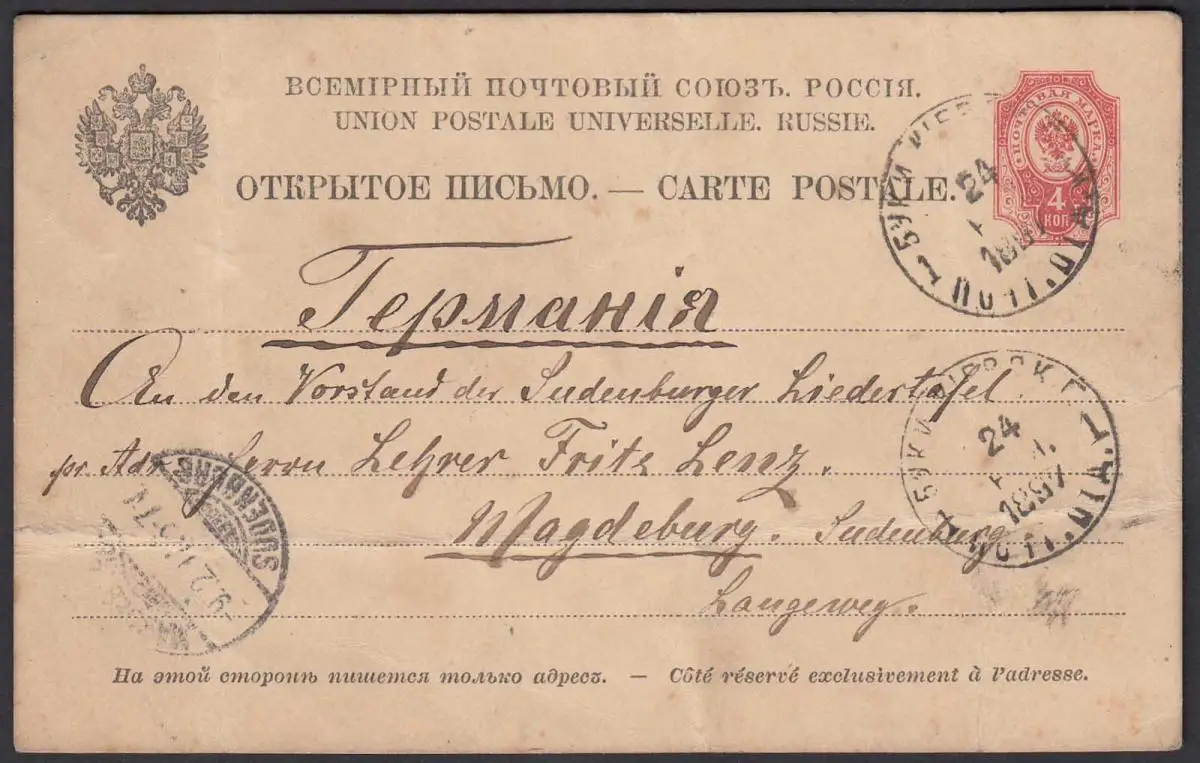 ВСЕМІРНЫЙ ПОЧТОВЫЙ СОЮЗЪ. РОССІЯ.
UNION POSTALE UNIVERSELLE. RUSSIE.
ОТКРЫТОЕ ПИСЬМО. — CARTE POSTALE.
ПОЧТОВАЯ МАРКА
4
КОП
1 БУКИ
24
Германія
An den Vorstand der Sudenburger Liedertafel.
pr. Adr. Herrn Lehrer Fritz Lenz.
Magdeburg. Sudenburg
Langeweg.
1 БУКИ
24
1897
SUDENBURG
На этой сторонѣ пишется только адресъ. — Côté réservé exclusivement à l'adresse.